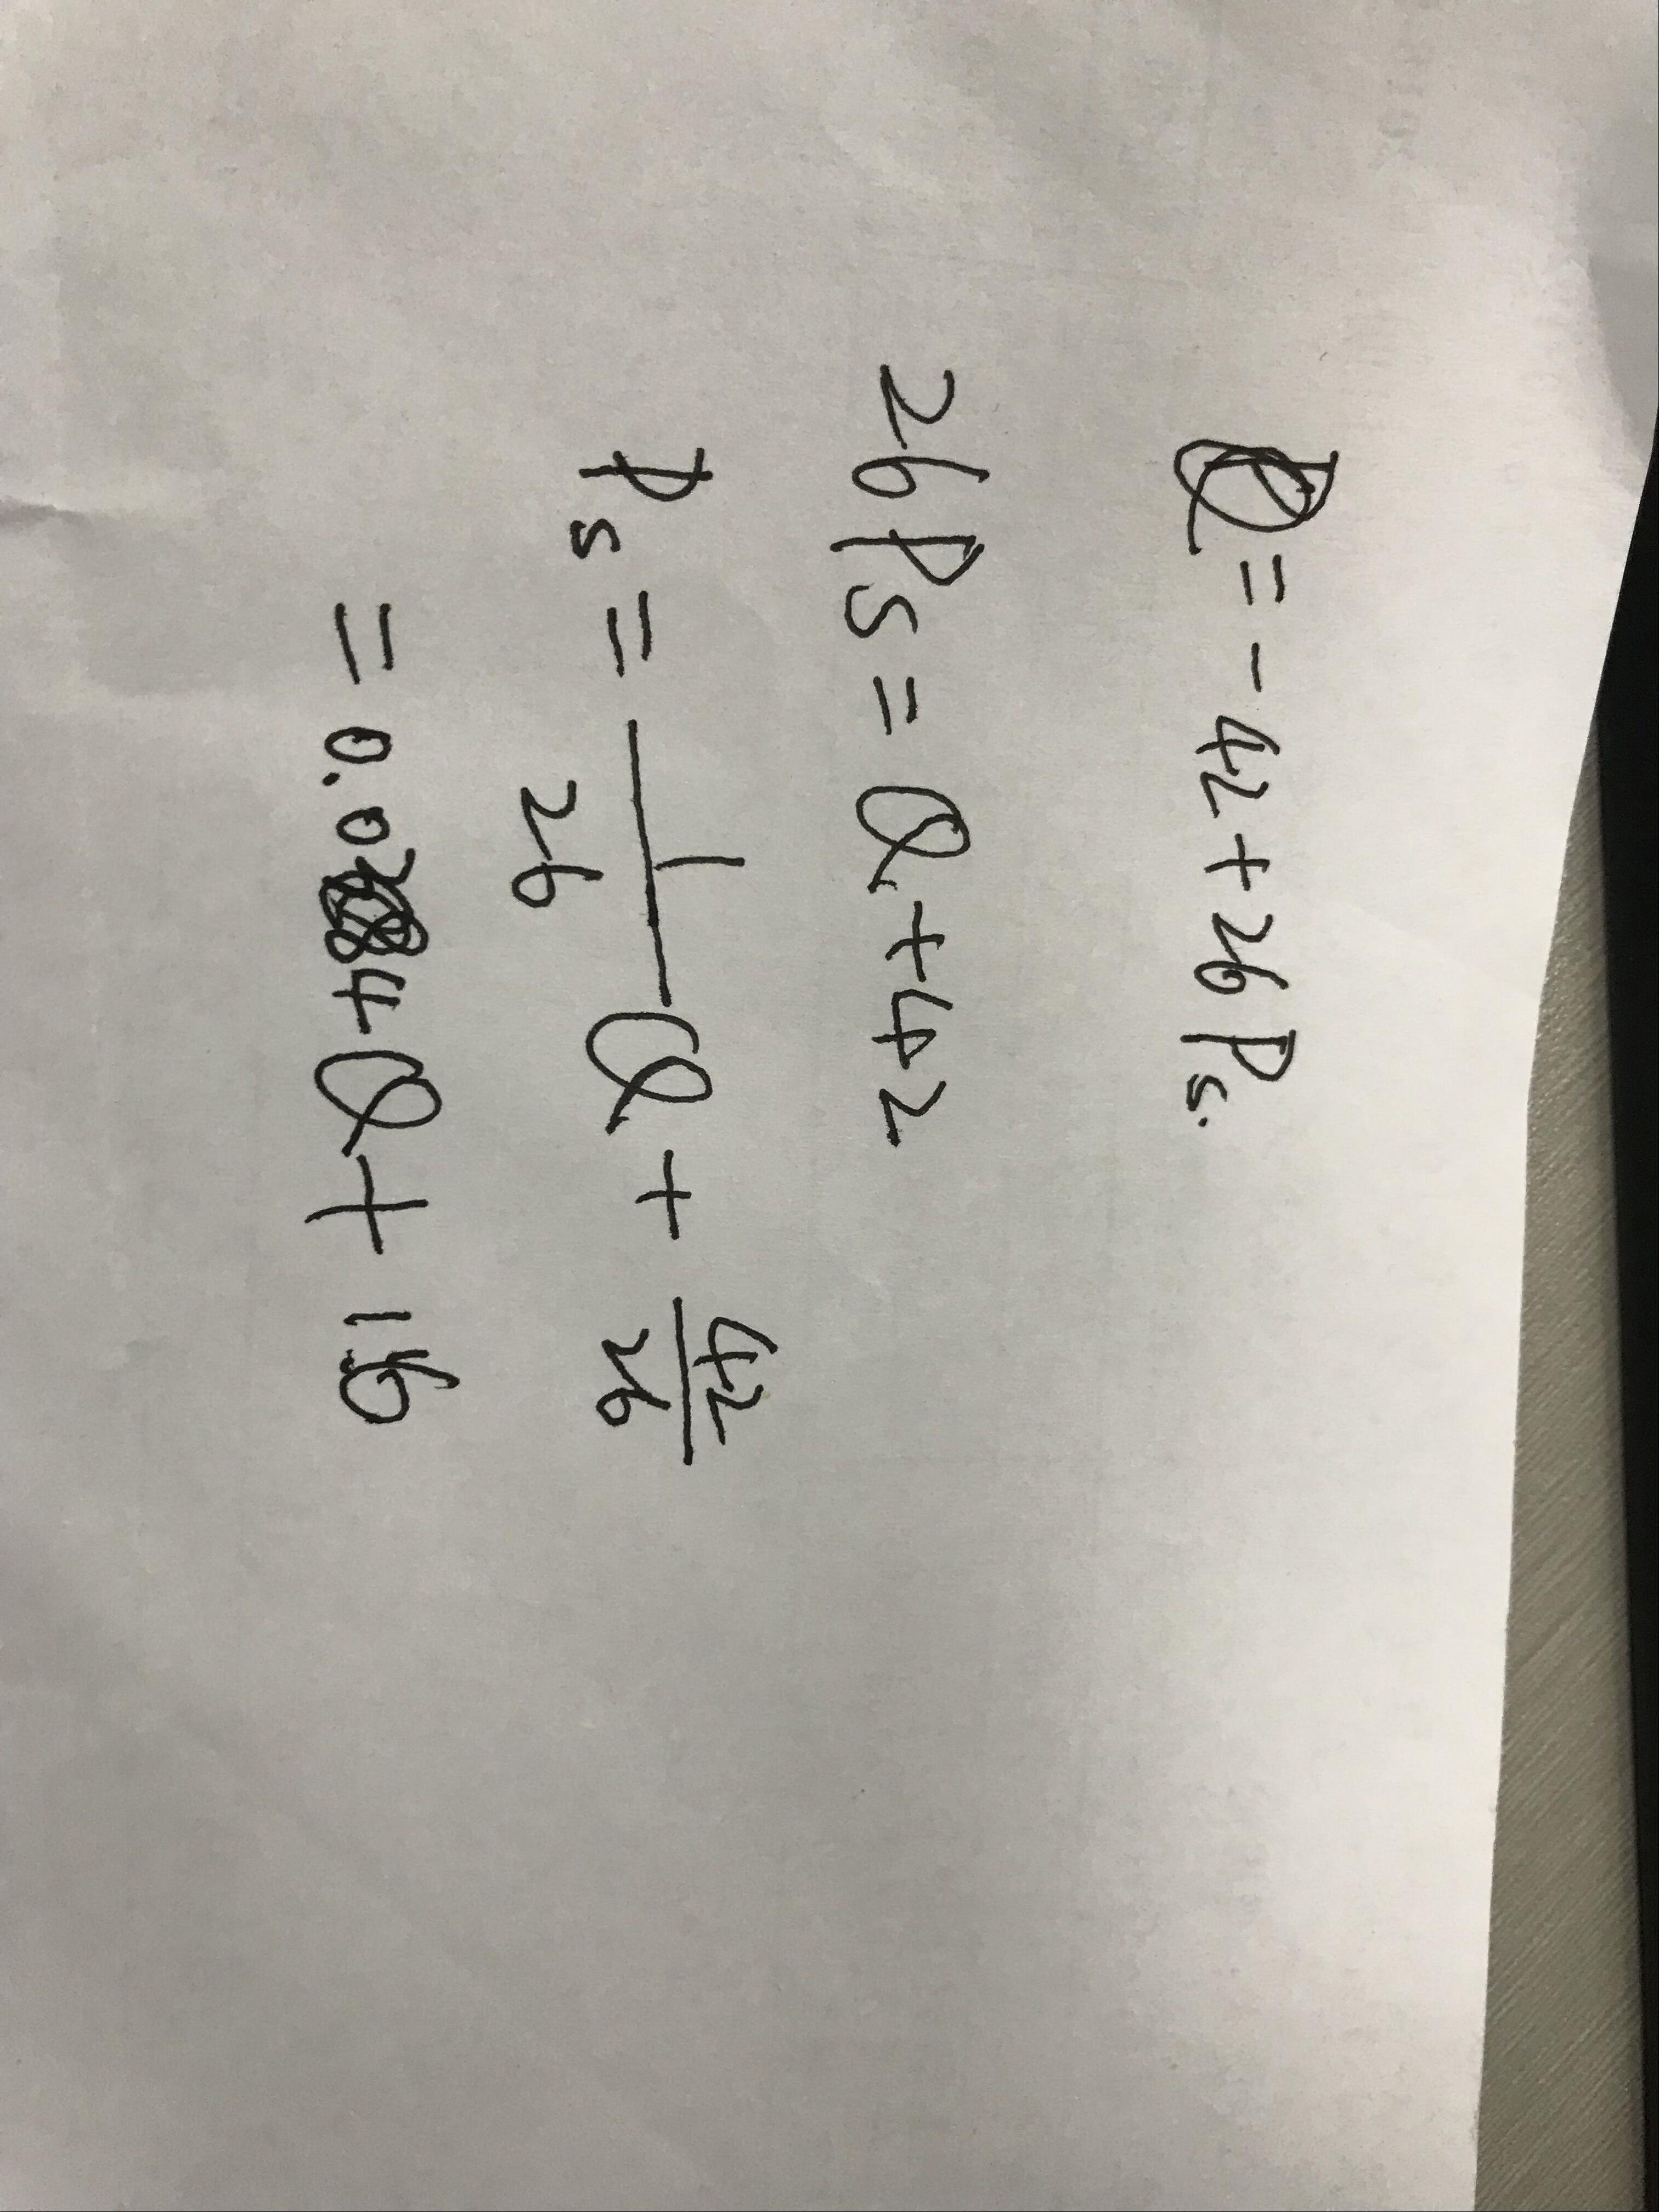 Q = - 42 + 26 Ps.
26 Ps = Q + 42
Ps = 1/26 Q + 42/26
= 0.04Q + 1.6